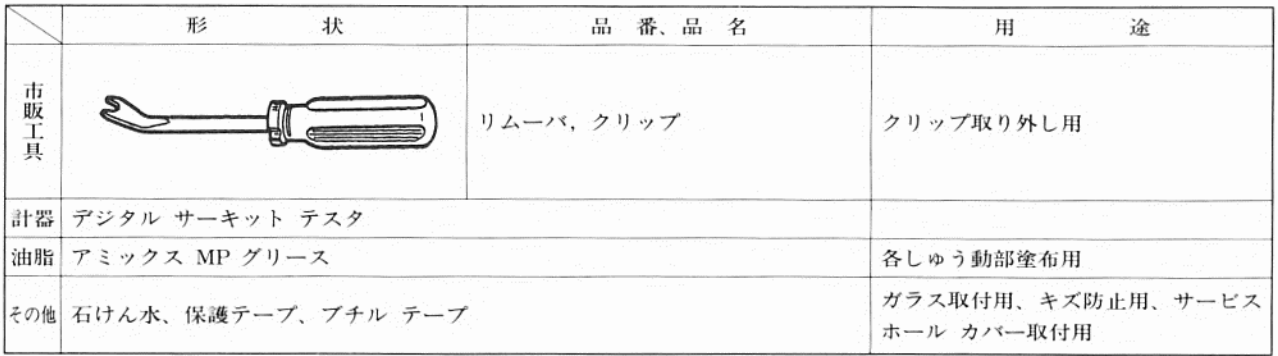 形 状 品 番、品 名 用 途
市販工具 リムーバ, クリップ クリップ取り外し用
計器 デジタル サーキット テスタ
油脂 アミックス MP グリース 各しゅう動部塗布用
その他 石けん水、保護テープ、ブチル テープ ガラス取付用、キズ防止用、サービス
ホール カバー取付用